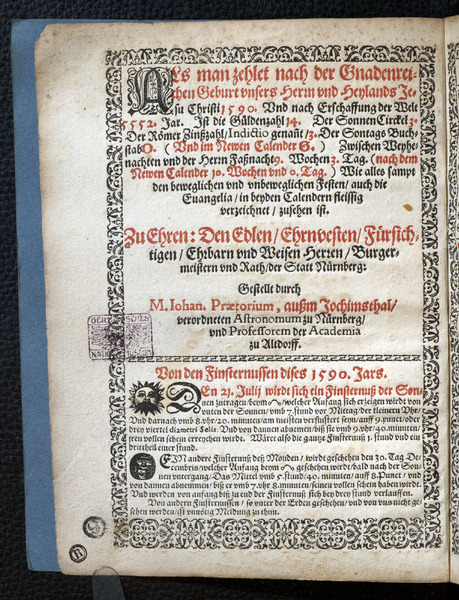 Als man zehlet nach der Gnadenrei-
chen Geburt vnsers Herrn vnd Heylands Je-
su Christi 1590. Vnd nach Erschaffung der Welt
5552. Jar. Ist die Güldenzahl 14. Der SonnenCirckel 3.
Der Römer Zinßzahl/Indictio genañt/3. Der Sontags Buch-
stab D. (Vnd im Newen Calender G.) Zwischen Weyhe-
nachten vnd der Herrn Faßnacht 9. Wochen 3. Tag. (nach dem
Newen Calender 10. Wochen vnd 0. Tag.) Wie alles sampt
den beweglichen vnd vnbeweglichen Festen/auch die
Euangelia/in beyden Calendern fleissig
verzeichnet/zusehen ist.
Zu Ehren: Den Edlen/Ehrnvesten/Fürsich-
tigen/Ehrbarn vnd Weisen Herren/Burger-
meistern vnd Rath/der Statt Nürnberg:
Gestellt durch
M. Iohan. Prætorium, außm Jochimsthal/
verordneten Astronomum zu Nürnberg/
vnd Professorem der Academia
zu Altdorff.
Von den Finsternussen dises 1590. Jars.
Den 21. Julij wirdt sich ein Finsternuß der Son-
nen zutragen/beym ☊/welcher Anfang sich erzeigen wirdt von
vnten der Sonnen/vmb 7. stund vor Mittag/der kleinern Vhr/
Vnd darnach vmb 8. vhr/20. minuten/am meisten verfinstert seyn/auff 9. punct/oder
drey viertel diametri Solis. Vnd von dannen abnemen/biß sie vmb 9. vhr/40. minuten
jren vollen schein erreychen wirdt. Wäret also die gantze Finsternuß 2. stund vnd ein
drittheil einer stund.
Ein andere Finsternuß deß Monden/wirdt geschehen den 30. Tag De-
cembris/welcher Anfang beym ☊ geschehen wirdt/bald nach der Son-
nen vntergang/Das Mittel vmb 5. stund/40. minuten/auff 8. Punct/vnd
von dannen abnemmen/biß er vmb 7. vhr 8. minuten/seinen vollen schein haben wirdt.
Vnd werden von anfang biß zu end der Finsternuß sich bey drey stund verlauffen.
Von andern Finsternussen/so vnter der Erden geschehen/vnd von vns nicht ge-
sehen werden/ist vnnötig Meldung zu thun.